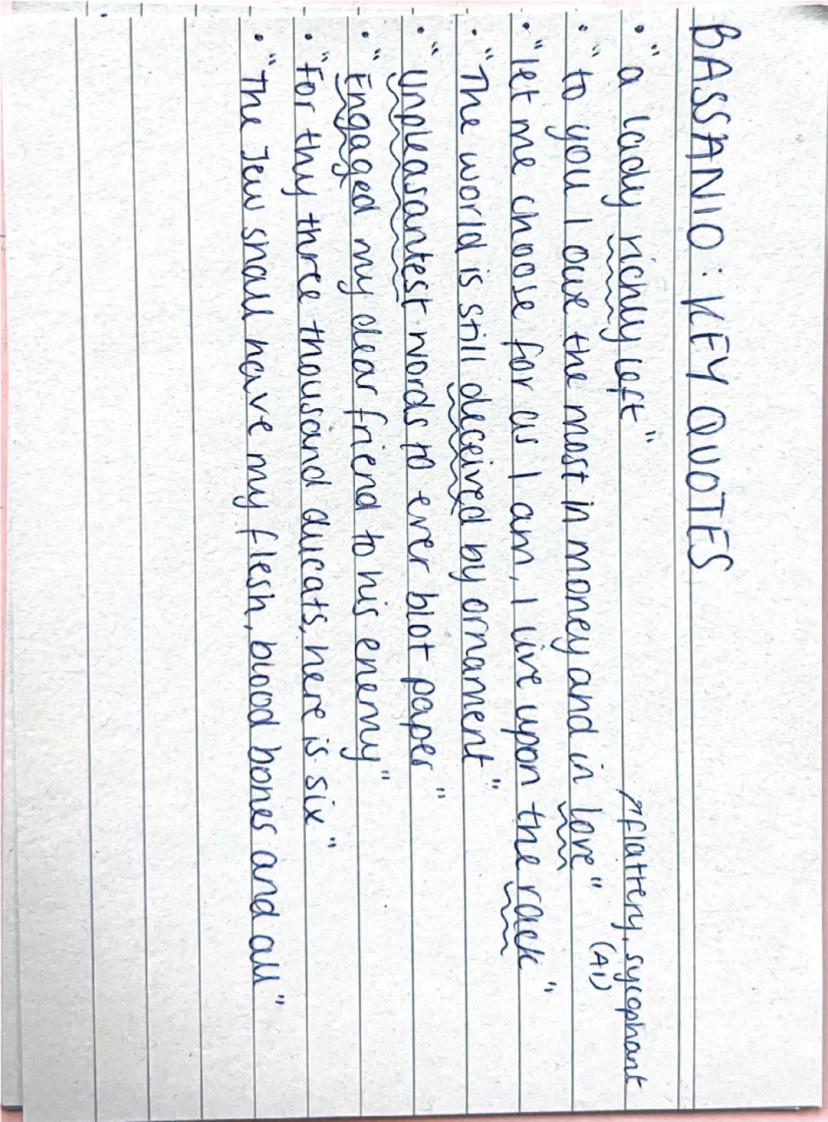 BASSANIO: KEY QUOTES
• "a lady richly left"
↗ flattery, sycophant
(A1)
• "to you I owe the most in money and in love"
• "let me choose for as I am, I live upon the rack"
• "The world is still deceived by ornament"
• "Unpleasantest words to ever blot paper"
• "Engaged my dear friend to his enemy"
• "For thy three thousand ducats, here is six"
• "The Jew shall have my flesh, blood bones and all"